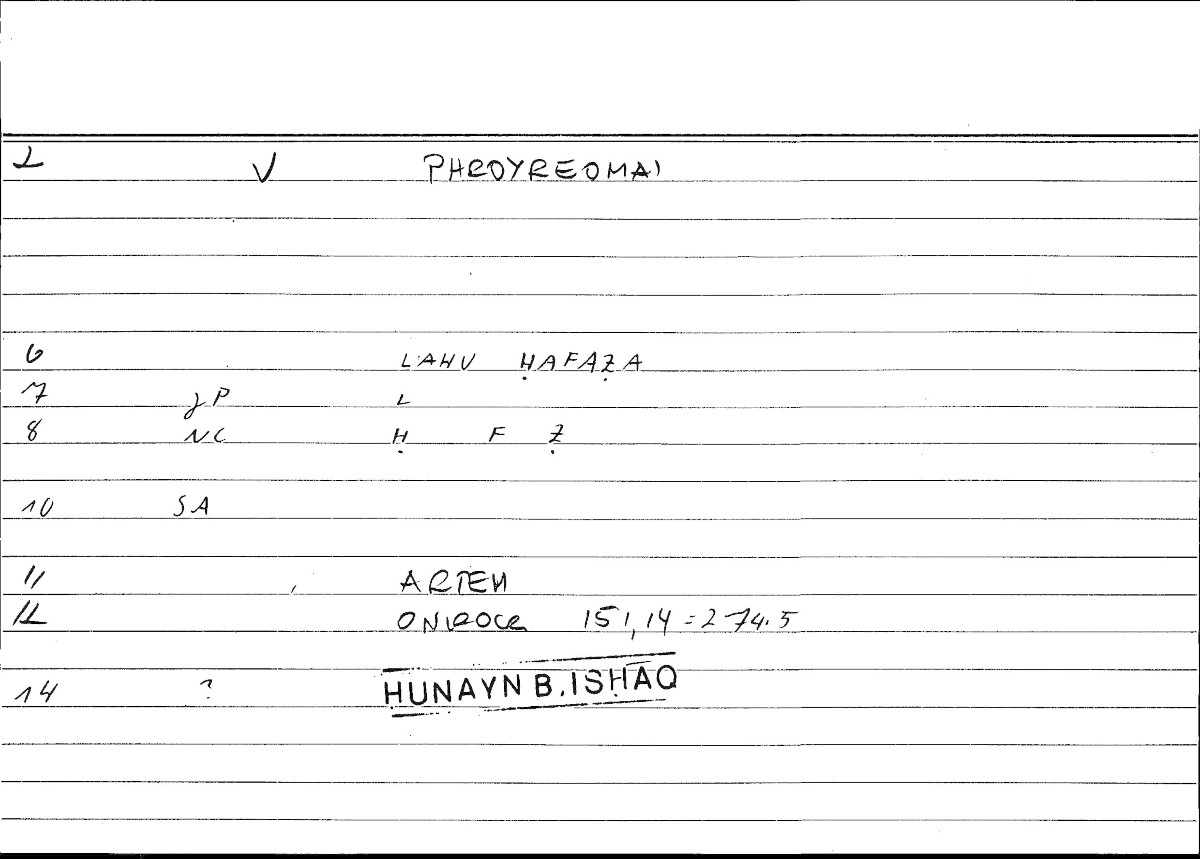 2 V PHROYREOMAI
6 LAHU ḤAFAẒA
7 JP L
8 NC Ḥ F Ẓ
10 SA
11 ARTEM
12 ONIROCR 151,14 = 274.5
14 ? ḤUNAYN B. ISḤĀQ